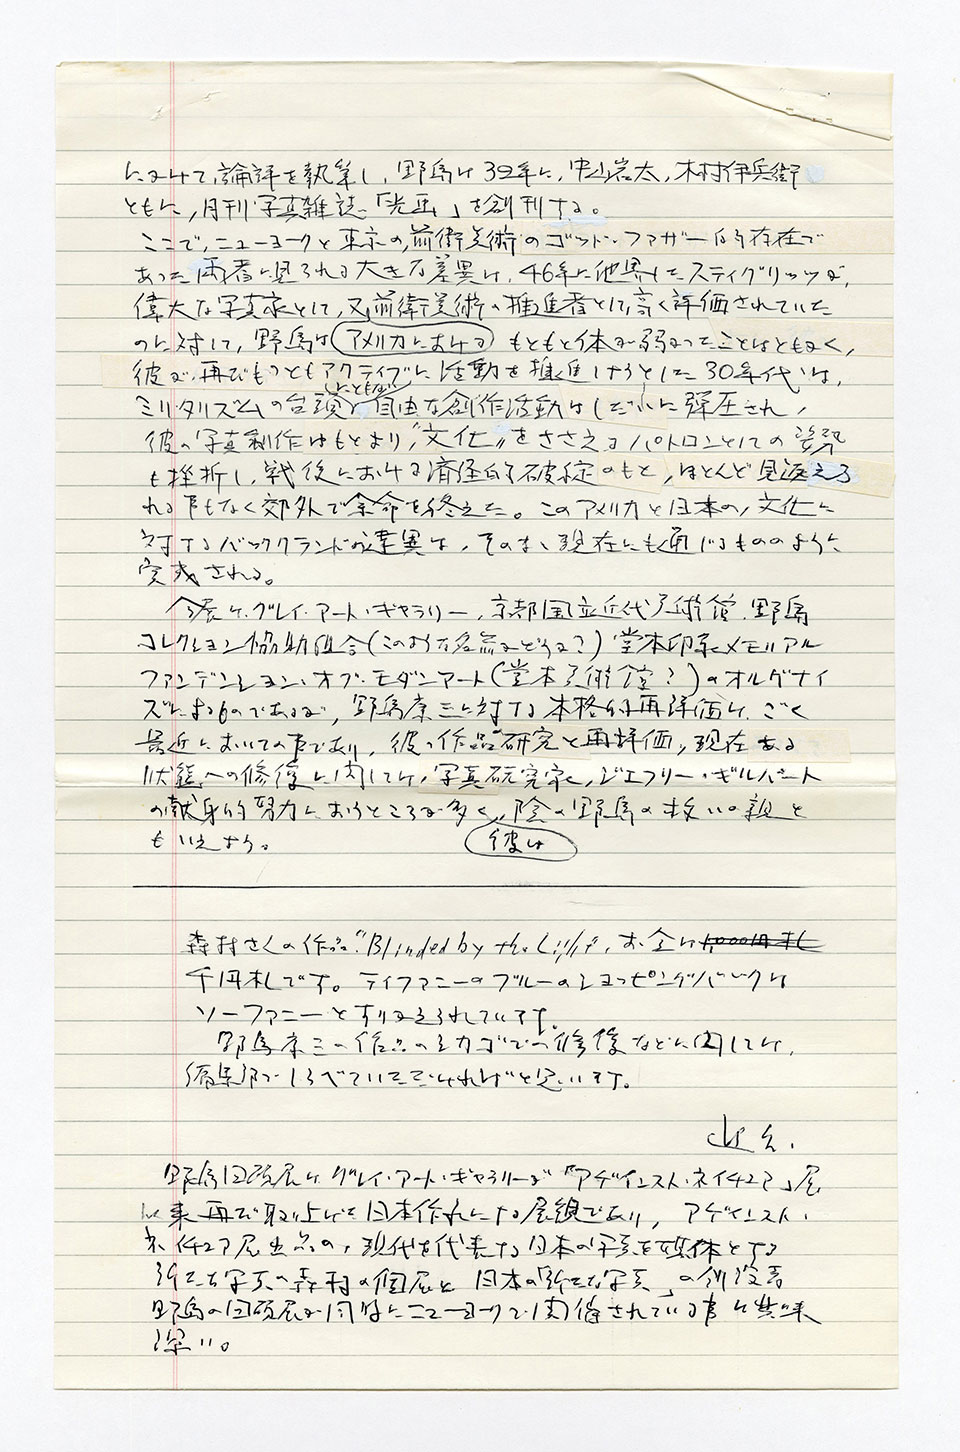 にかけて論評を執筆し、野島は32年に、中山岩太、木村伊兵衛
ともに、月刊写真雑誌「光画」を創刊する。
ここで、ニューヨークと東京の、前衛美術のゴッド・ファザー的存在で
あった両者に見られる大きな差異は、46年に他界したスティグリッツが、
偉大な写真家として、又、前衛美術の推進者として高く評価されていた
のに対して、野島は アメリカにおける もともと体が弱かったことはともかく、
彼が再びもっともアクティブに活動を推進しようとした30年代は、
ミリタリズムの台頭とともに自由な創作活動はしだいに弾圧され、
彼の写真制作はもとより"文化"をささえるパトロンとしての姿勢
も挫折し、戦後における経済的破綻のもと、ほとんど見返えら
れる事もなく郊外で余命を終えた。このアメリカと日本の、文化に
対するバックグランドの差異は、そのまま現在にも通じるもののように
完成される。
今展は、グレイ・アート・ギャラリー、京都国立近代美術館、野島
コレクション協助組合(このような名前かどうか?)堂本印象メモリアル
ファンデンション・オブ・モダンアート(堂本美術館?)のオルガナイ
ズによるものであるが、野島康三に対する本格的再評価は、ごく
最近においての事であり、彼の作品研究と再評価、現在ある
状態への修復に関しては、写真研究家、ジェフリー・ギルバート
の献身的努力によるところが多く、陰の野島の救いの親と
もいえよう。
彼は
森村さんの作品"Blinded by the Light"、お金は1,000円札
千円札です。ティファニーのブルーのショッピングバックは
ソーファニーとすりかえられています。
野島康三の作品のシカゴでの修復などに関しては、
編集部でしらべていただければと思います。
野島回顧展は、グレイ・アート・ギャラリーが「アゲインスト・ネイチュア」展
以来再び取り上げた日本作家による展観であり、アゲインスト・
ネイチュア展出品の、現代を代表する日本の写真を媒体とする
新たな写真の森村の個展と 日本の「新たな写真」の創設者
野島の回顧展が同時にニューヨークで開催されている事は興味
深い。